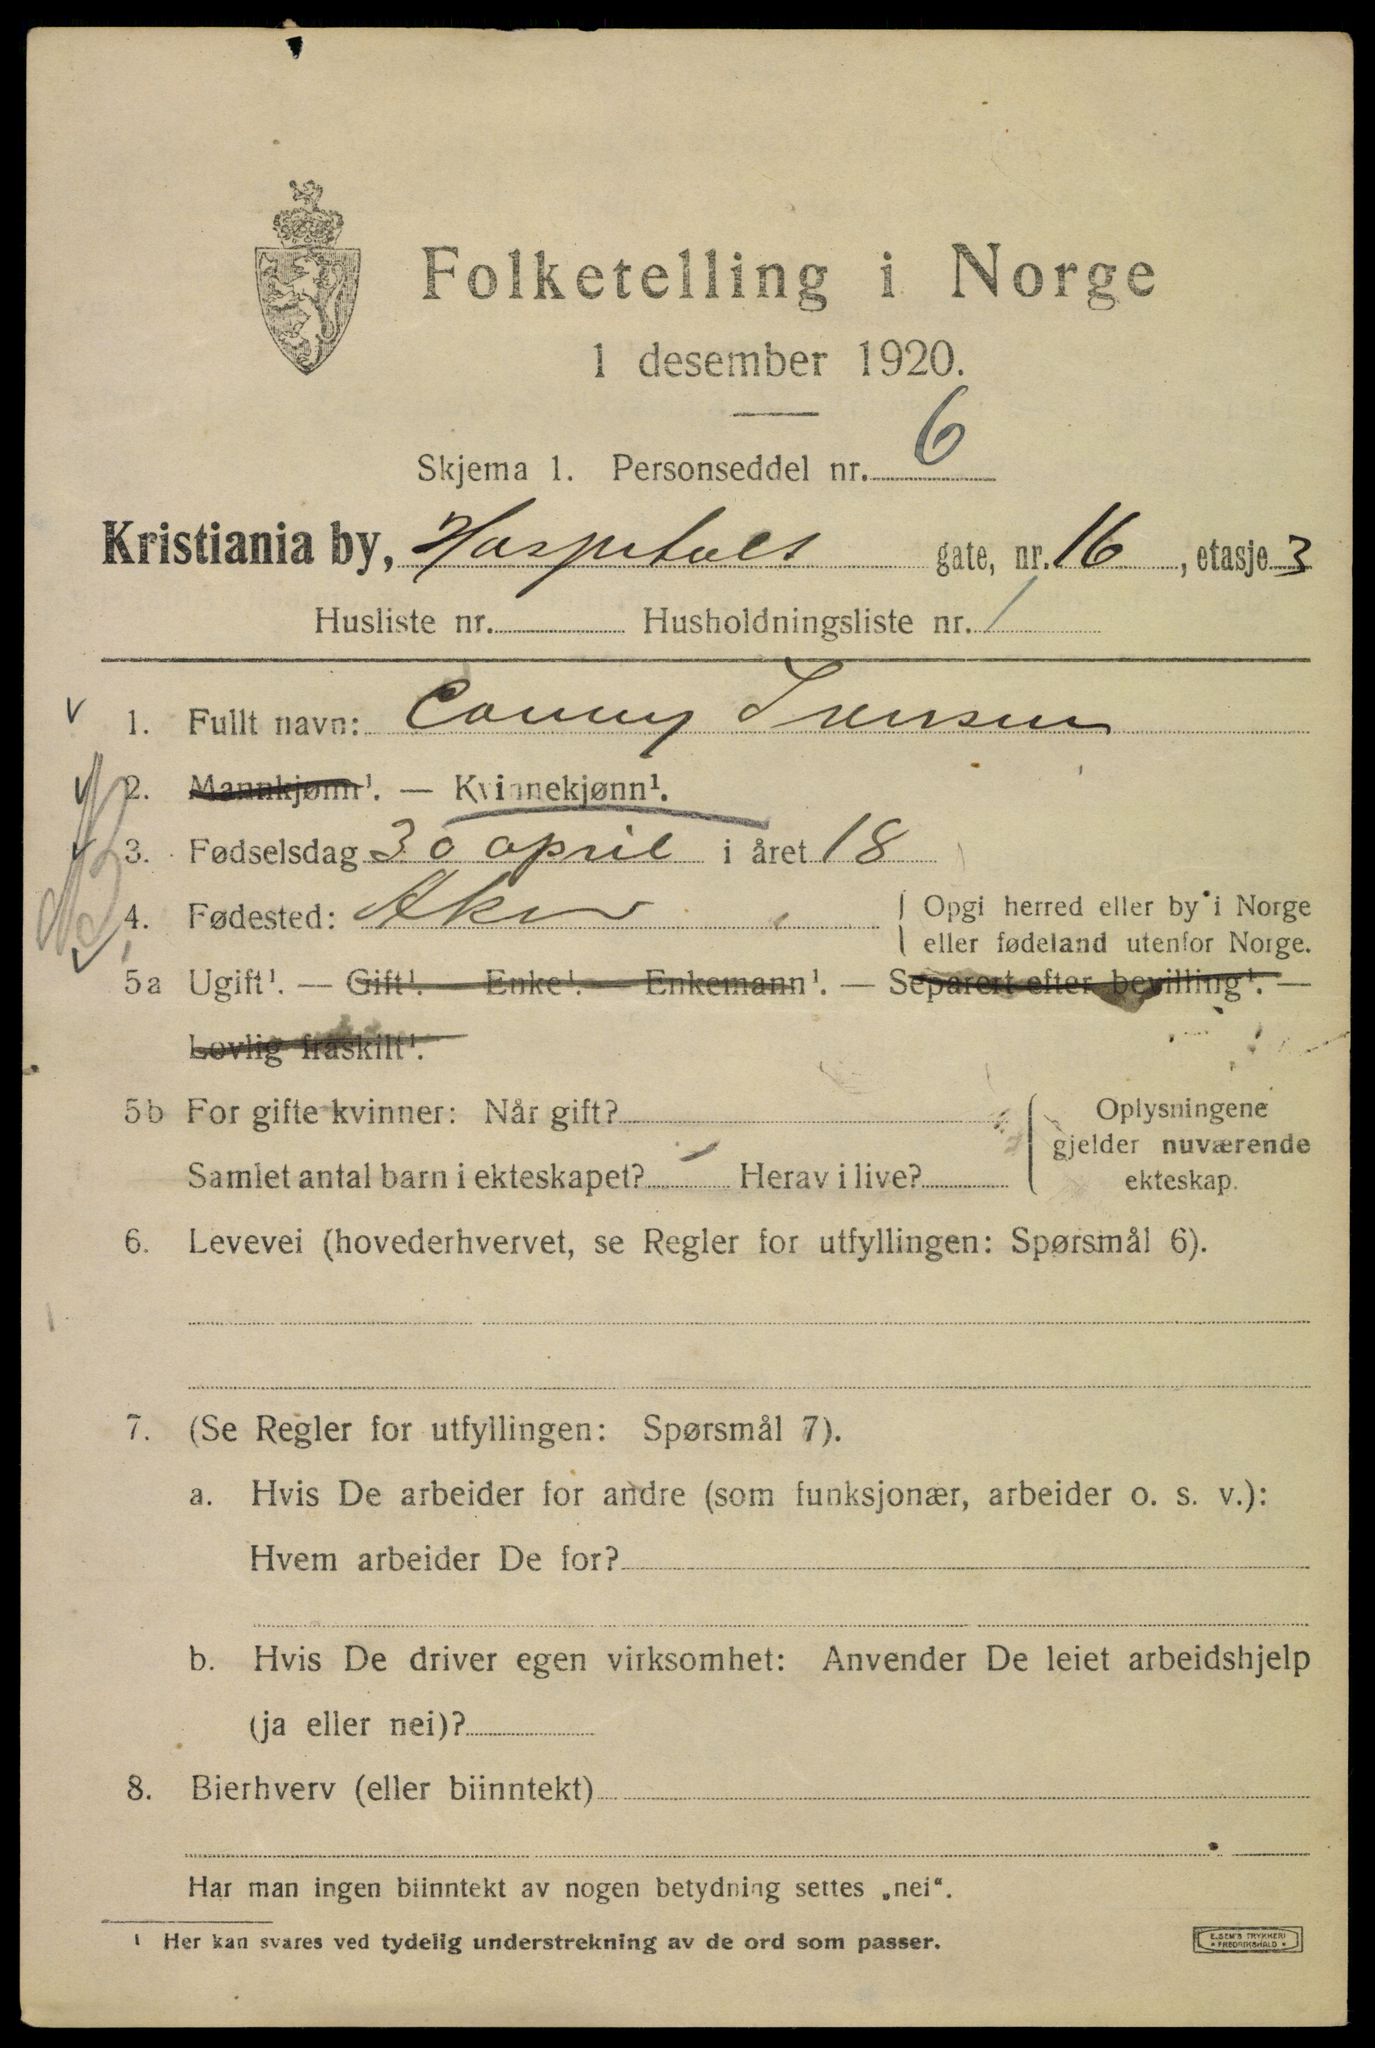 Folketelling i Norge
1 desember 1920.
Skjema 1. Personseddel nr. 6
Kristiania by, Hospitals gate, nr. 16, etasje 3
Husliste nr. Husholdningsliste nr. 1
1. Fullt navn: Conny
2. Mannkjønn¹. — Kvinnekjønn¹.
3. Fødselsdag 30 april i året 18
4. Fødested: Aker
Opgi herred eller by i Norge
eller fødeland utenfor Norge.
5a Ugift¹. — Gift¹. — Enke¹. — Enkemann¹. — Separert efter bevilling¹. —
Lovlig fraskilt¹.
5b For gifte kvinner: Når gift?
Samlet antal barn i ekteskapet? Herav i live?
Oplysningene
gjelder nuværende
ekteskap.
6. Levevei (hovederhvervet, se Regler for utfyllingen: Spørsmål 6).
7. (Se Regler for utfyllingen: Spørsmål 7).
a. Hvis De arbeider for andre (som funksjonær, arbeider o. s. v.):
Hvem arbeider De for?
b. Hvis De driver egen virksomhet: Anvender De leiet arbeidshjelp
(ja eller nei)?
8. Bierhverv (eller biinntekt)
Har man ingen biinntekt av nogen betydning settes „nei“.
¹ Her kan svares ved tydelig understrekning av de ord som passer.
E. SEM'S TRYKKERI
* FREDRIKSHALD *